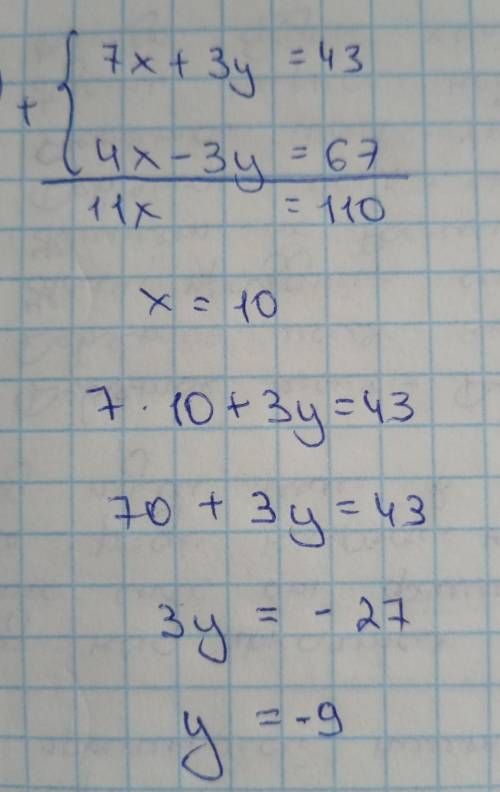 7x + 3y = 43
+
4x - 3y = 67
11x = 110
x = 10
7 · 10 + 3y = 43
70 + 3y = 43
3y = - 27
y = -9